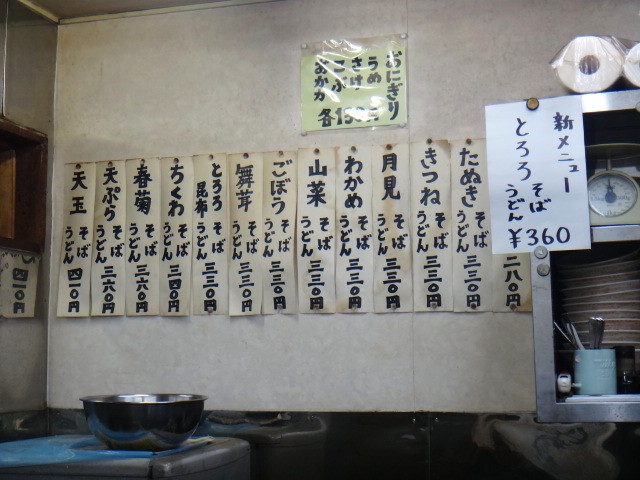 おにぎり
うめ
さけ
こぶ
おかか
各150円
新メニュー
とろろ そば うどん
¥360
二八〇円
たぬき そば うどん 三三〇円
きつね そば うどん 三三〇円
月見 そば うどん 三三〇円
わかめ そば うどん 三三〇円
山菜 そば うどん 三三〇円
ごぼう そば うどん 三三〇円
舞茸 そば うどん 三三〇円
とろろ昆布 そば うどん 三三〇円
ちくわ そば うどん 三四〇円
春菊 そば うどん 三六〇円
天ぷら そば うどん 三六〇円
天玉 そば うどん 四一〇円
四一〇円